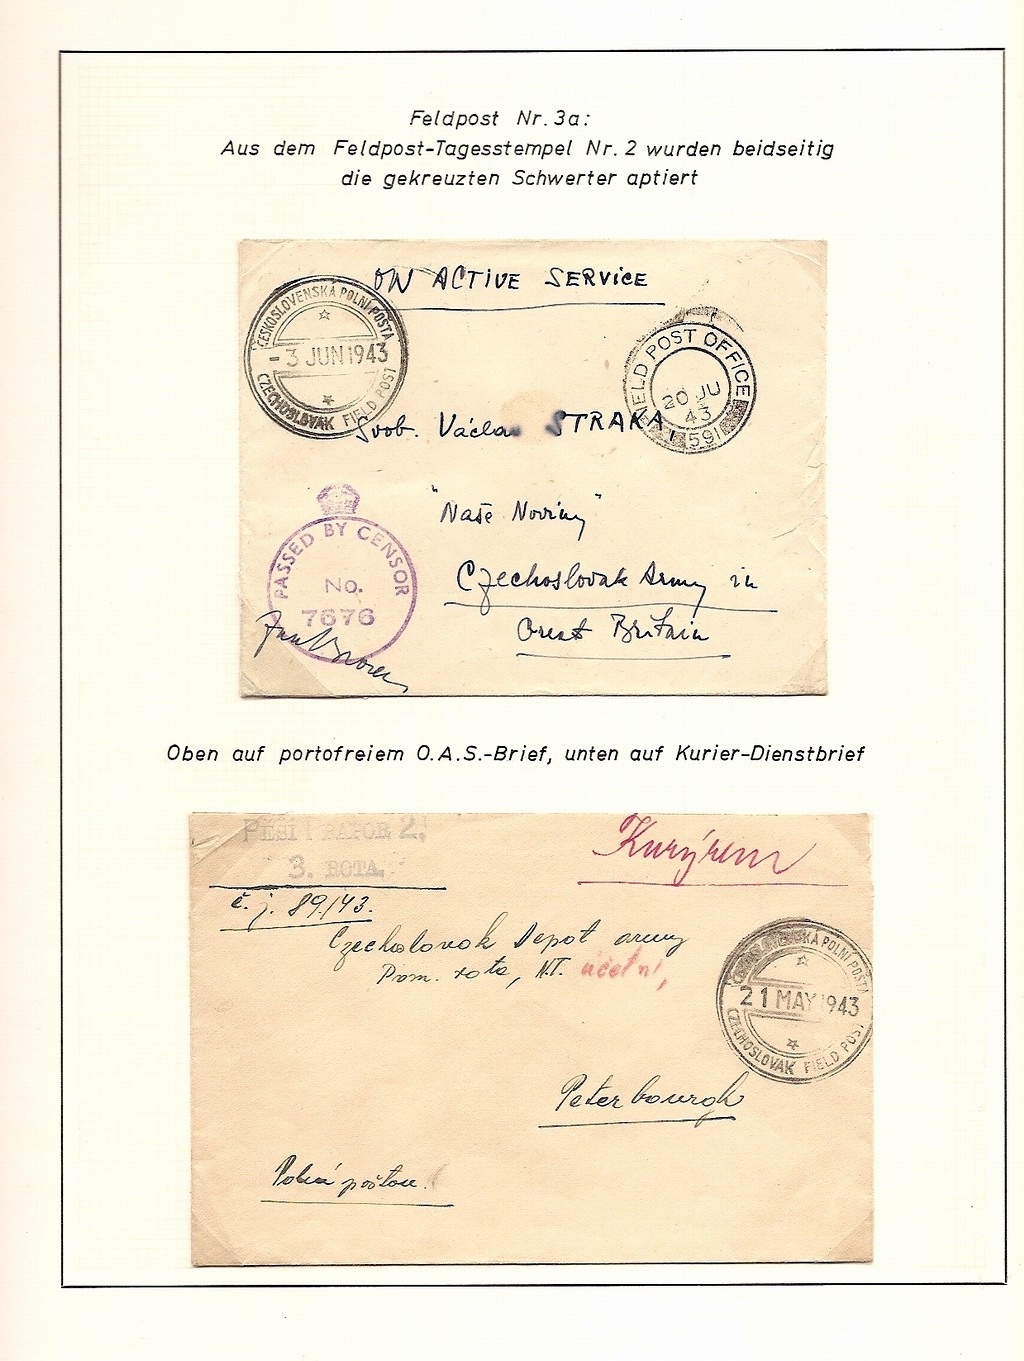 Feldpost Nr. 3a:
Aus dem Feldpost-Tagesstempel Nr. 2 wurden beidseitig
die gekreuzten Schwerter aptiert
ON ACTIVE SERVICE
ČESKOSLOVENSKÁ POLNÍ POŠTA
- 3 JUN 1943
CZECHOSLOVAK FIELD POST
FIELD POST OFFICE
20 JU
43
591
Svob. Václav STRAKA,
"Naše Noviny"
PASSED BY CENSOR
No.
7676
Czechoslovak Army in
Great Britain
Oben auf portofreiem O.A.S.-Brief, unten auf Kurier-Dienstbrief
PĚŠÍ PRAPOR 2.
3. ROTA.
Kurýrem
č. j. 89/43.
Czechoslovak Depot army
Pom. rota, N.T. účetní,
ČESKOSLOVENSKÁ POLNÍ POŠTA
21 MAY 1943
CZECHOSLOVAK FIELD POST
Peterbourgh
Polní poštou.